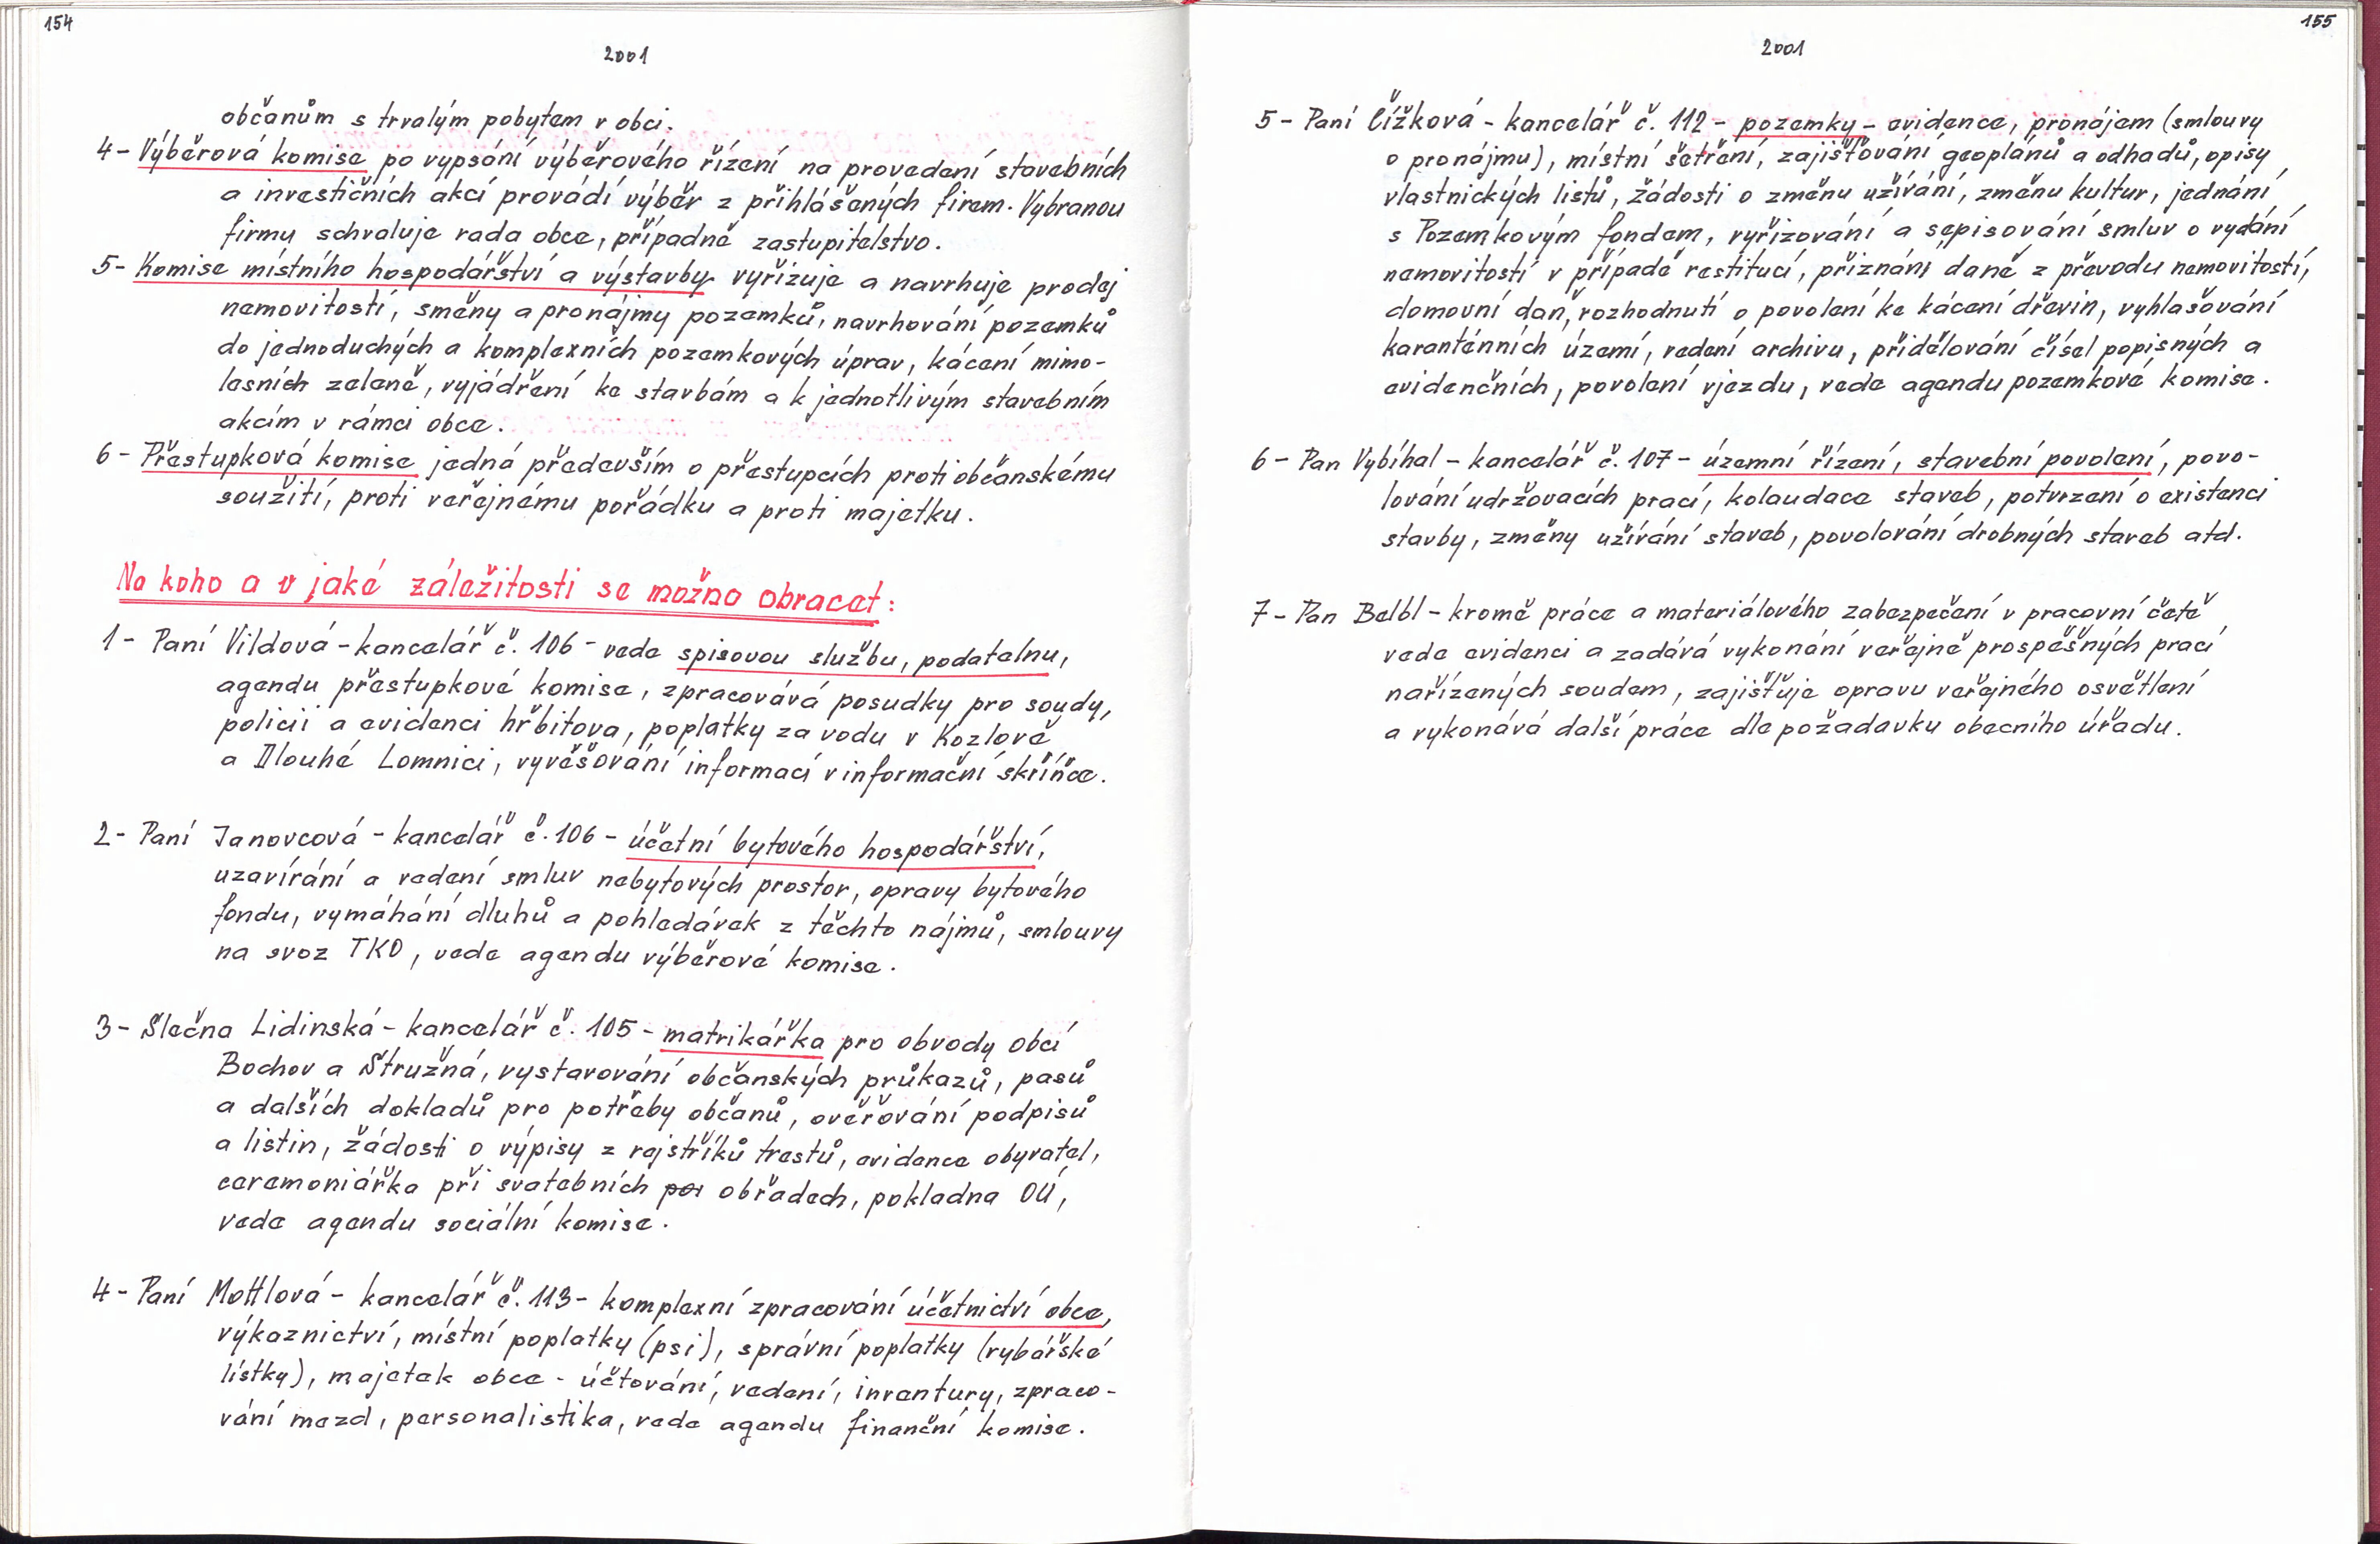 154
2001
občanům s trvalým pobytem v obci.
4 - Výběrová komise po vypsání výběrového řízení na provedení stavebních
a investičních akcí provádí výběr z přihlášených firem. Vybranou
firmu schvaluje rada obce, případně zastupitelstvo.
5 - Komise místního hospodářství a výstavby vyřizuje a navrhuje prodej
nemovitostí, směny a pronájmy pozemků, navrhování pozemků
do jednoduchých a komplexních pozemkových úprav, kácení mimo-
lesních zeleně, vyjádření ke stavbám a k jednotlivým stavebním
akcím v rámci obce.
6 - Přestupková komise jedná především o přestupcích proti občanskému
soužití, proti veřejnému pořádku a proti majetku.
Na koho a v jaké záležitosti se možno obracet:
1 - Paní Vildová - kancelář č. 106 - vede spisovou službu, podatelnu,
agendu přestupkové komise, zpracovává posudky pro soudy,
policii a evidenci hřbitova, poplatky za vodu v Kozlově
a Dlouhé Lomnici, vyvěšování informací v informační skříňce.
2 - Paní Janovcová - kancelář č. 106 - účetní bytového hospodářství,
uzavírání a vedení smluv nebytových prostor, opravy bytového
fondu, vymáhání dluhů a pohledávek z těchto nájmů, smlouvy
na svoz TKO, vede agendu výběrové komise.
3 - Slečna Lidinská - kancelář č. 105 - matrikářka pro obvody obcí
Bochov a Stružná, vystavování občanských průkazů, pasů
a dalších dokladů pro potřeby občanů, ověřování podpisů
a listin, žádosti o výpisy z rejstříků trestů, evidence obyvatel,
ceremoniářka při svatebních obřadech, pokladna OÚ,
vede agendu sociální komise.
4 - Paní Mottlová - kancelář č. 113 - komplexní zpracování účetnictví obce,
výkaznictví, místní poplatky (psi), správní poplatky (rybářské
lístky), majetek obce - účtování, vedení, inventury, zpraco-
vání mezd, personalistika, vede agendu finanční komise.
155
2001
5 - Paní Čížková - kancelář č. 112 - pozemky - evidence, pronájem (smlouvy
o pronájmu), místní šetření, zajišťování geoplánů a odhadů, opisy
vlastnických listů, žádosti o změnu užívání, změnu kultur, jednání
s Pozemkovým fondem, vyřizování a sepisování smluv o vydání
nemovitostí v případě restitucí, přiznání daně z převodu nemovitostí,
domovní daň, rozhodnutí o povolení ke kácení dřevin, vyhlašování
karanténních území, vedení archivu, přidělování čísel popisných a
evidenčních, povolení vjezdu, vede agendu pozemkové komise.
6 - Pan Vybíhal - kancelář č. 107 - územní řízení, stavební povolení, povo-
lování udržovacích prací, kolaudace staveb, potvrzení o existenci
stavby, změny užívání staveb, povolování drobných staveb atd.
7 - Pan Belbl - kromě práce a materiálového zabezpečení v pracovní četě
vede evidenci a zadává vykonání veřejně prospěšných prací
nařízených soudem, zajišťuje opravu veřejného osvětlení
a vykonává další práce dle požadavku obecního úřadu.